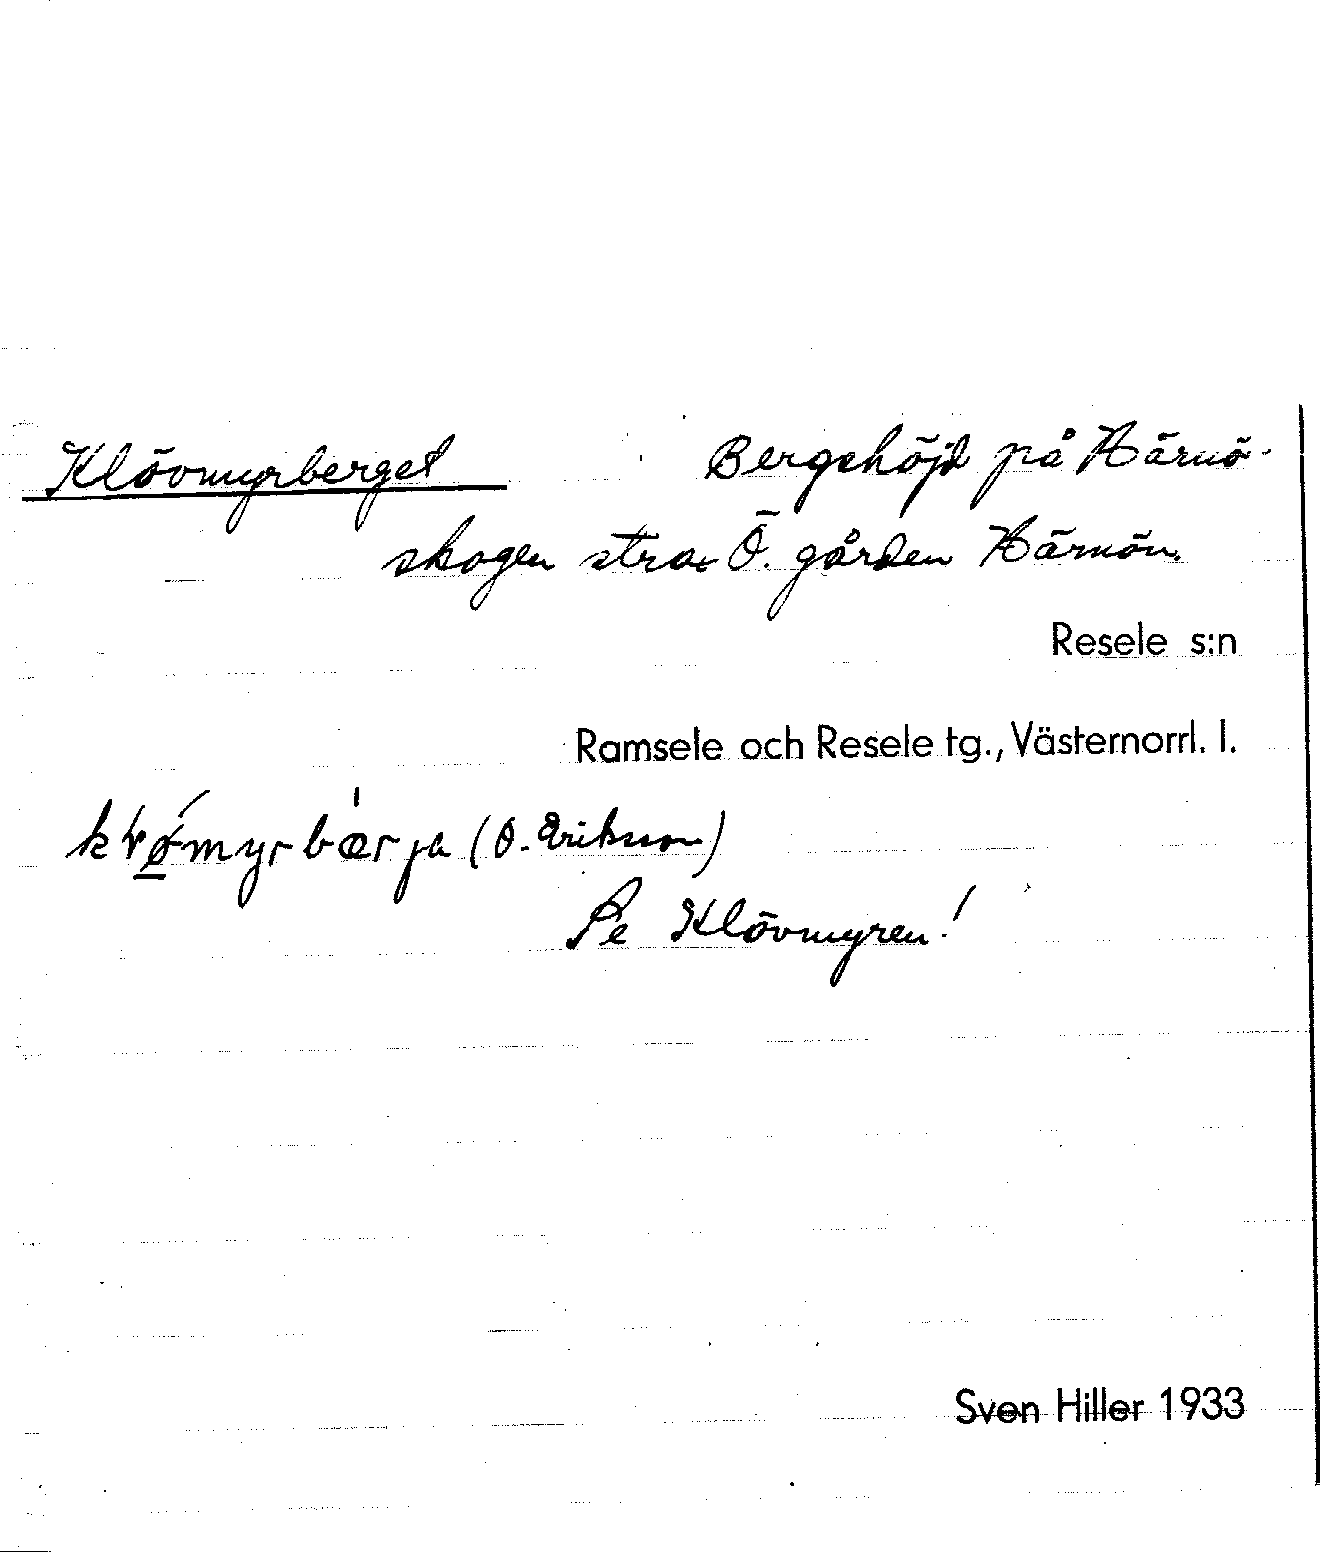 Klövmyrberget Bergshöjd på Härnö-
skogen strax Ö. gården Härnön.
Resele s:n
Ramsele och Resele tg., Västernorrl. l.
(O. Erikson)
Se Klövmyren!
Sven Hiller 1933